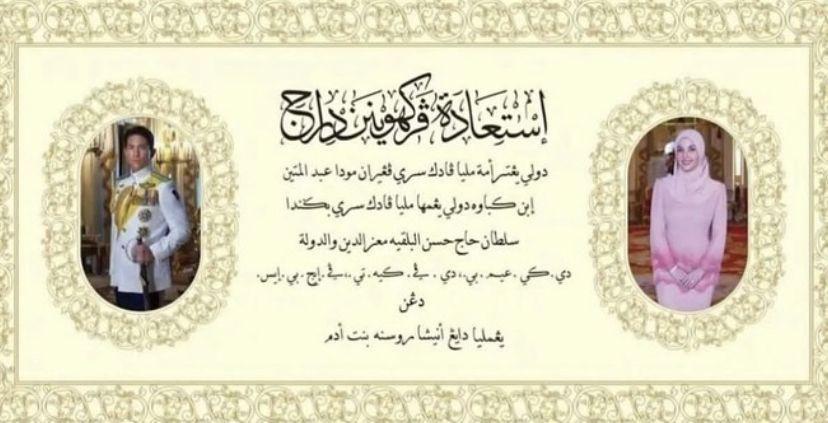 إستعادة ڤركهوينن دراج
دولي يڠتر أمة مليا ڤادك سري ڤڠيران مودا عبد المتين
إبن كباوه دولي يڠمها مليا ڤادك سري بݢيندا
سلطان حاج حسن البلقيه معز الدين والدولة
دي. كي. عيم. بي.، دي. ڤي. كيه. تي.، ڤي. إيچ. بي. إيس.
دڠن
يڠمليا دايڠ أنيشا روسنه بنت أدم